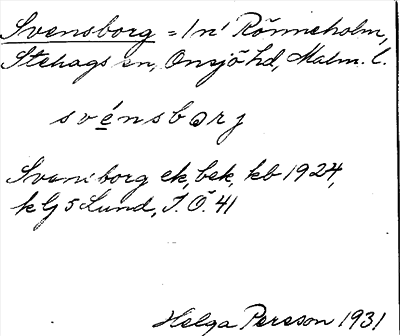 Svensborg = 1 n' Rönneholm,
Stehags sn, Onsjö hd, Malm. l.
svénsbərj
Svensborg ek, bek, kb 1924,
klj 5 Lund, T.Ö. 41
Helga Persson 1931